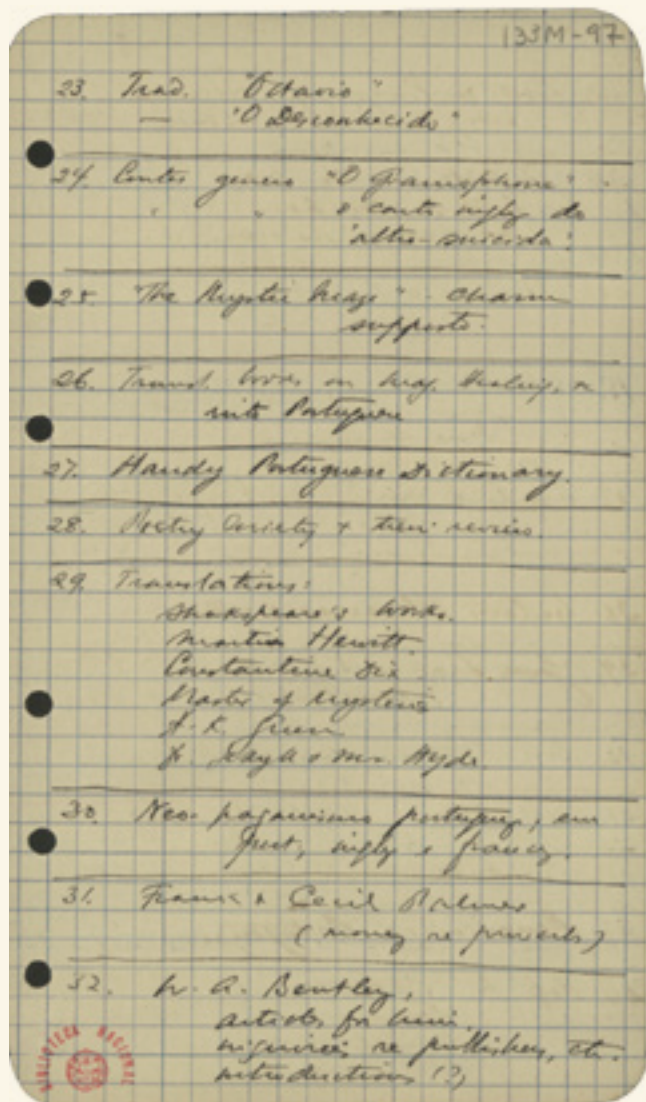 133M-97
23. Trad. "Octavio"
— "O Desconhecido"
24. Contos genero "O Gramophone"
" " o conto inglez do
"altro-suicida".
25. "The Mystic
supports.
26. Transl. books on Mag. Healing, &
into Portuguese
27. Handy Portuguese Dictionary.
28. Poetry Society & their review.
29. Translations:
Shakespeare's works.
Martin Hewitt.
Constantine Dix
Master of Mysteries
A. K. Green
Jekyll & Mr. Hyde.
30. Neo-paganismo portuguez, em
port, inglez e francez.
31. Frank & Cecil Palmer
(money re proverbs)
32. W. A. Bentley,
articles for him,
inquiries re publishers, etc.
introductions (?)
BIBLIOTECA NACIONAL